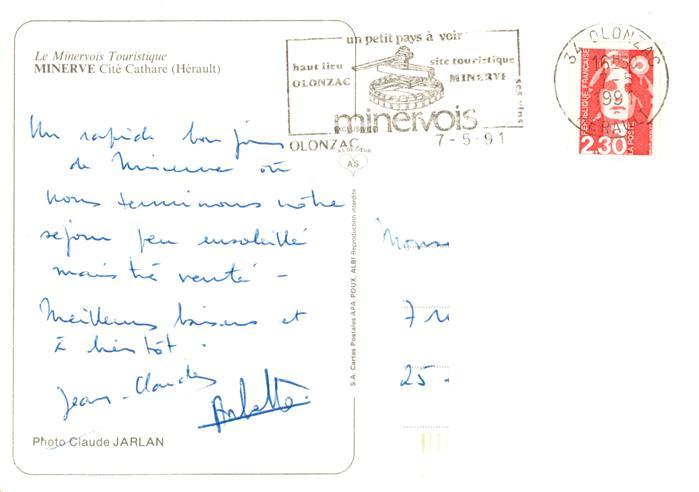 Le Minervois Touristique
MINERVE Cité Cathare (Hérault)
Un rapide bonjour
de Minerve où
nous terminons notre
séjour peu ensoleillé
mais très venté -
Meilleurs baisers et
à bientôt.
Jean-Claude
Arlette
Photo Claude JARLAN
un petit pays à voir
haut lieu
OLONZAC
site touristique
MINERVE
ses vins
minervois
OLONZAC
7-5-91
EXCLUSIVITÉ
AS DE CŒUR
AS
S.A. Cartes Postales APA-POUX, ALBI Reproduction interdite
34 OLONZAC
16H50
1991
HERAULT
RÉPUBLIQUE FRANÇAISE
LA POSTE
2,30
7
25 -